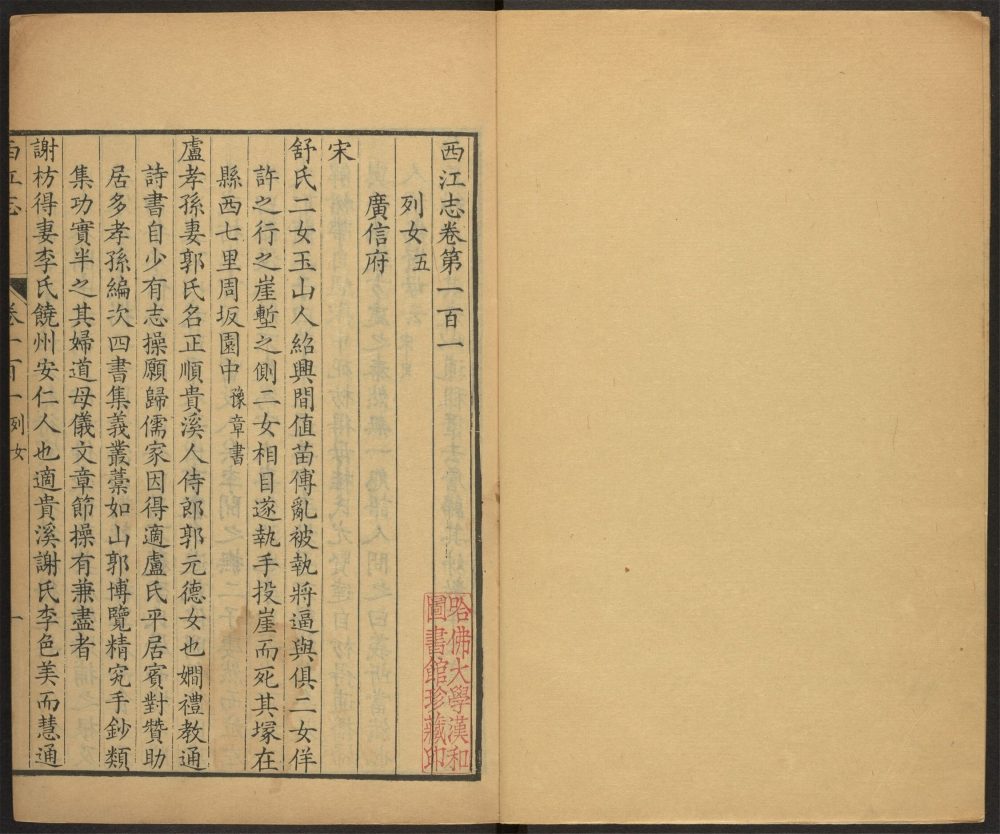 西江志卷第一百一
列女五
廣信府
宋
舒氏二女玉山人紹興間值苗傅亂被執將逼與俱二女佯
許之行之崖塹之側二女相目遂執手投崖而死其塚在
縣西七里周坂園中豫章書
盧孝孫妻郭氏名正順貴溪人侍郎郭元德女也嫺禮教通
詩書自少有志操願歸儒家因得適盧氏平居賓對贊助
居多孝孫編次四書集義叢藁如山郭博覽精究手鈔類
集功實半之其婦道母儀文章節操有兼盡者
謝枋得妻李氏饒州安仁人也適貴溪謝氏李色美而慧通
西江志 卷一百一 列女 一
哈佛大學漢和
圖書館珍藏印